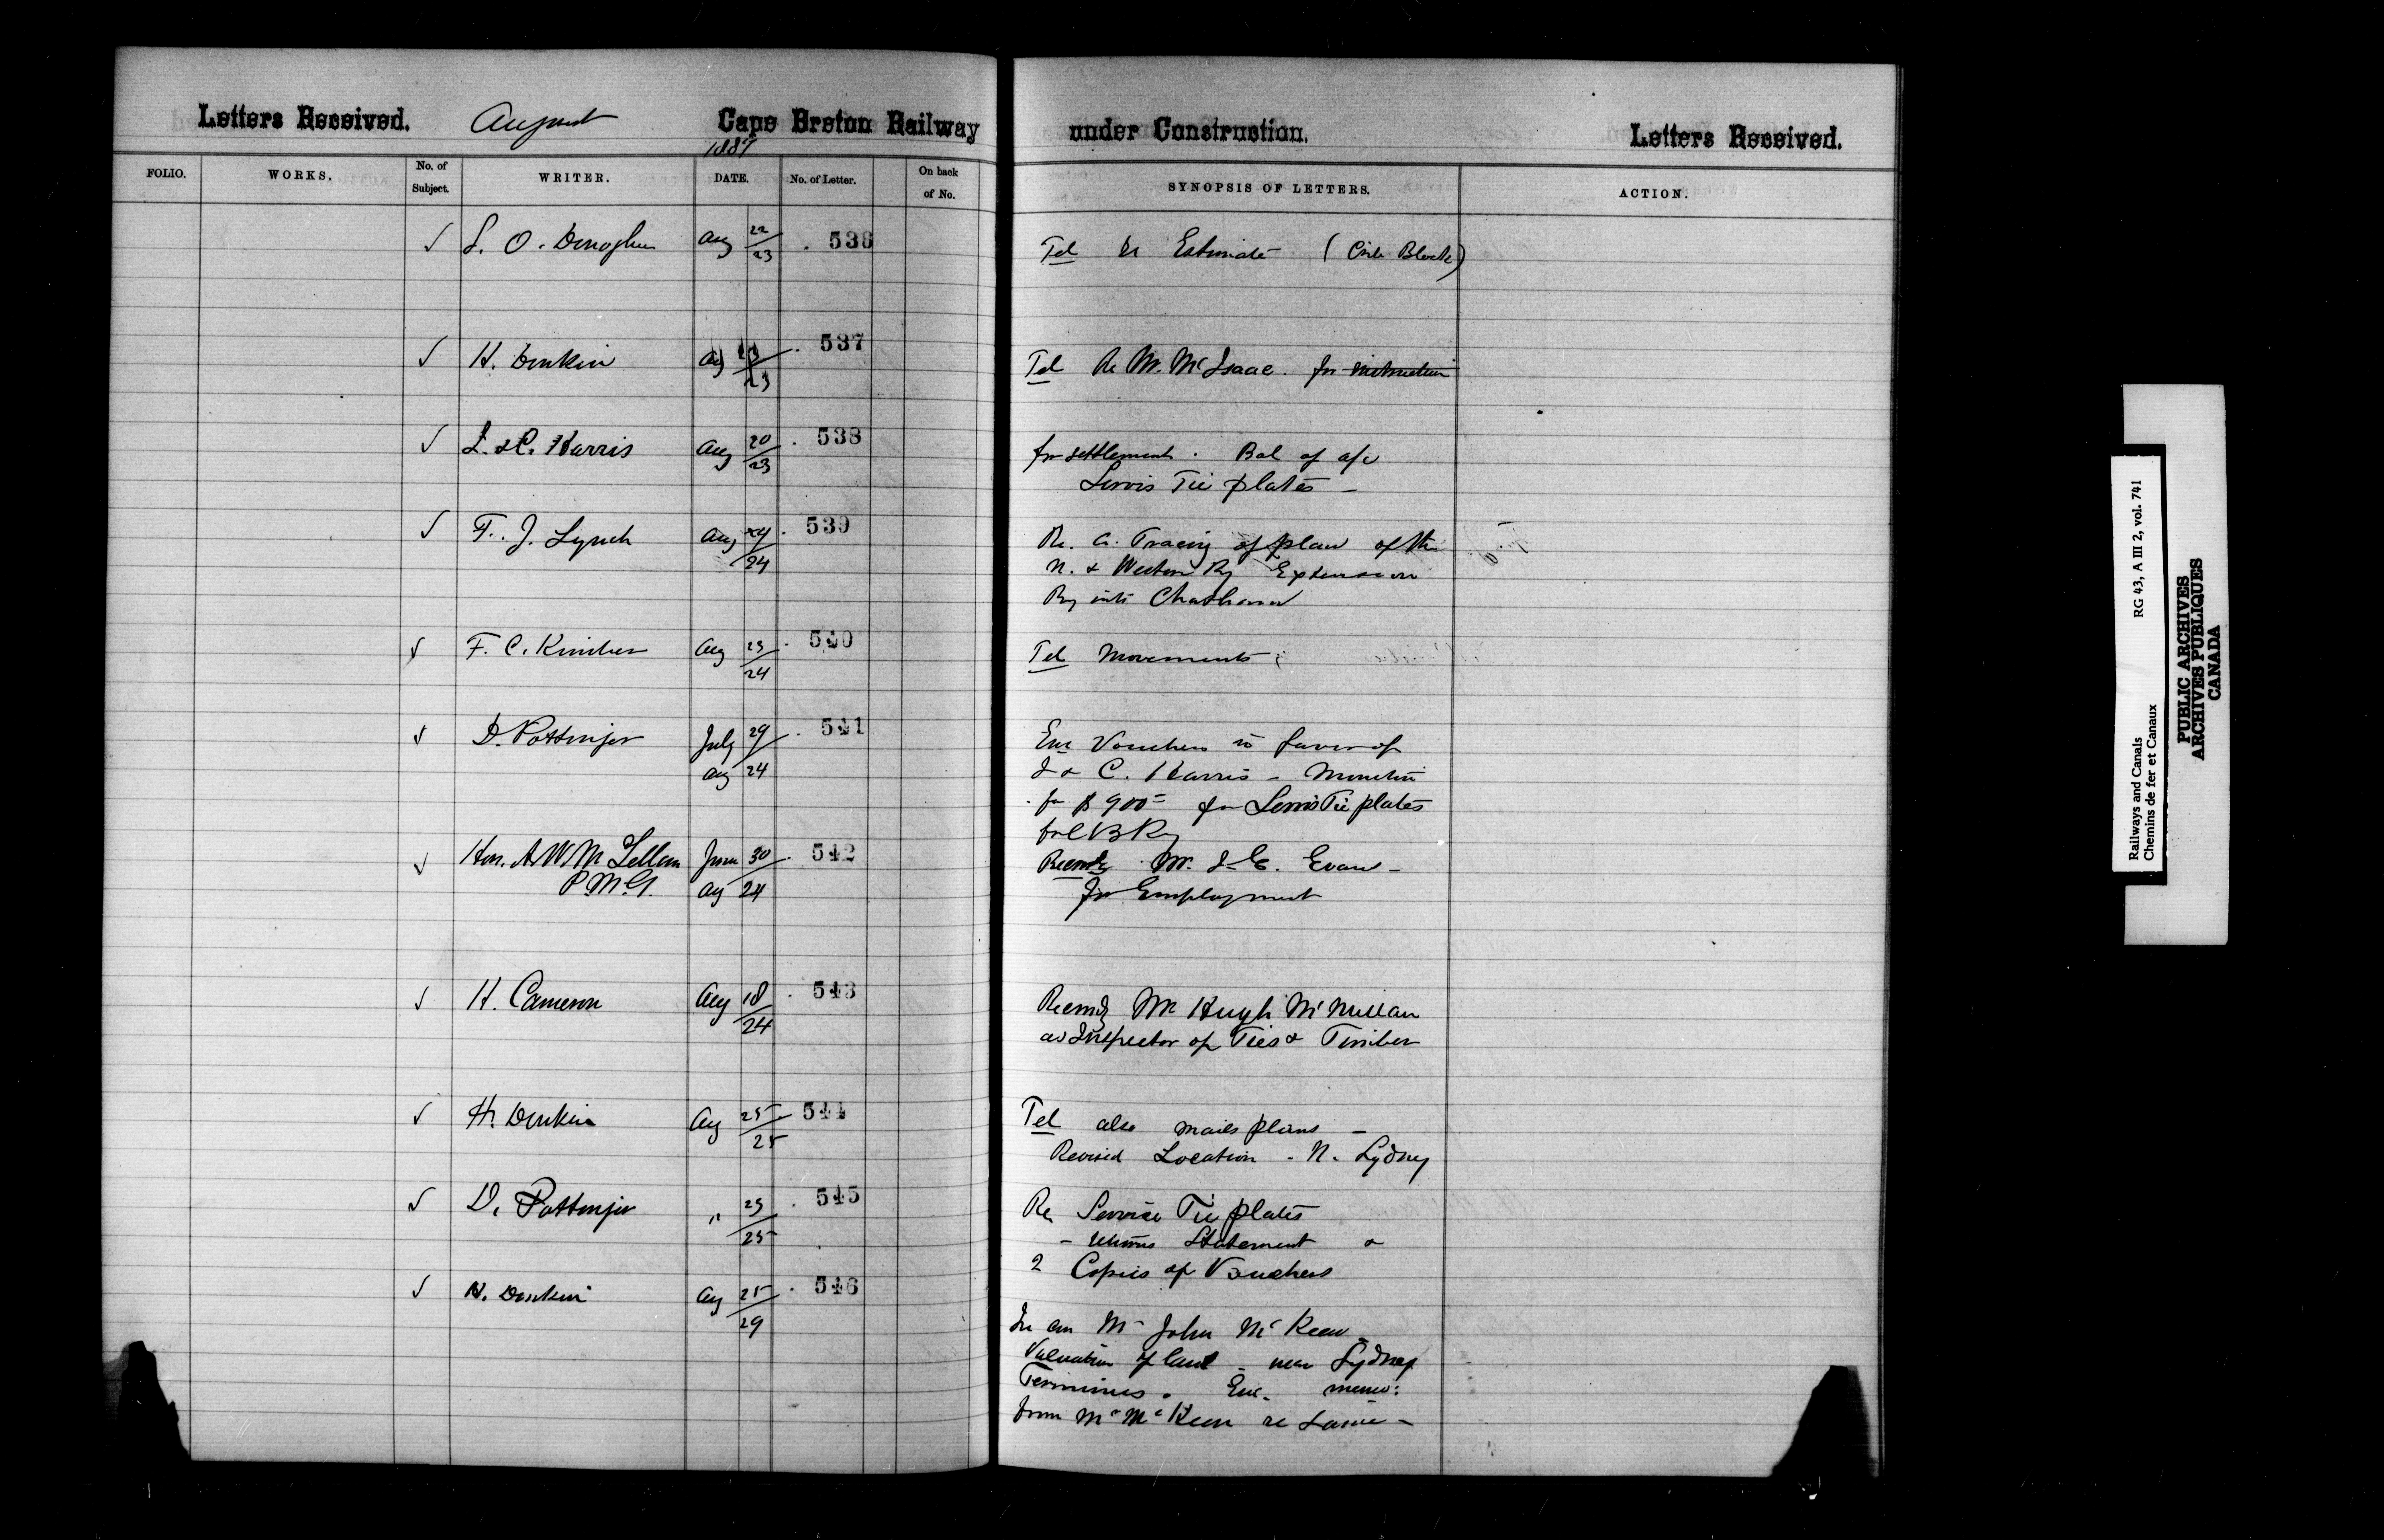 Letters Received. August Cape Breton Railway under Construction. Letters Received.
1887
FOLIO. WORKS. No. of Subject. WRITER. DATE. No. of Letter. On back of No. SYNOPSIS OF LETTERS. ACTION.
✓ Aug 22/23 . 536 Tel re Estimate (Crib Block)
✓ H. Donkin Aug 23/23 . 537 Tel Re Mr. McIsaac. for instruction
✓ J. & C. Harris Aug 20/23 . 538 for settlement. Bal of a/c
Servis Tie plates –
✓ F. J. Lynch Aug 24/24 . 539 Re. a. Tracing of plan of the
N. & Western Ry Extension
Ry into Chatham
✓ F. C. Kimber Aug 23/24 . 540 Tel Movements
✓ D. Pottinger July 29/Aug 24 . 541 Enc Vouchers in favor of
J & C. Harris – Moncton
for $900= for Servis Tie plates
for C B Ry
✓ Hon. A. W. McLellan June 30/Aug 24 . 542 Recmdg Mr. Evans –
P.M.G. for Employment
✓ H. Cameron Aug 18/24 . 543 Recmdg Mr Hugh McMillan
as Inspector of Ties & Timber
✓ H. Donkin Aug 25/25 544 Tel also mails plans –
Revised Location – N. Sydney
✓ D. Pottinger " 23/25 . 545 Re Service Tie plates
– returns Statement &
2 Copies of Vouchers
✓ H. Donkin Aug 25/29 . 546 Mr John McKeen
Valuation of land – near Sydney
Terminus. Enc. memo:
from Mr McKeen re same –
Railways and Canals RG 43, A III 2, vol. 741
Chemins de fer et Canaux
PUBLIC ARCHIVES
ARCHIVES PUBLIQUES
CANADA